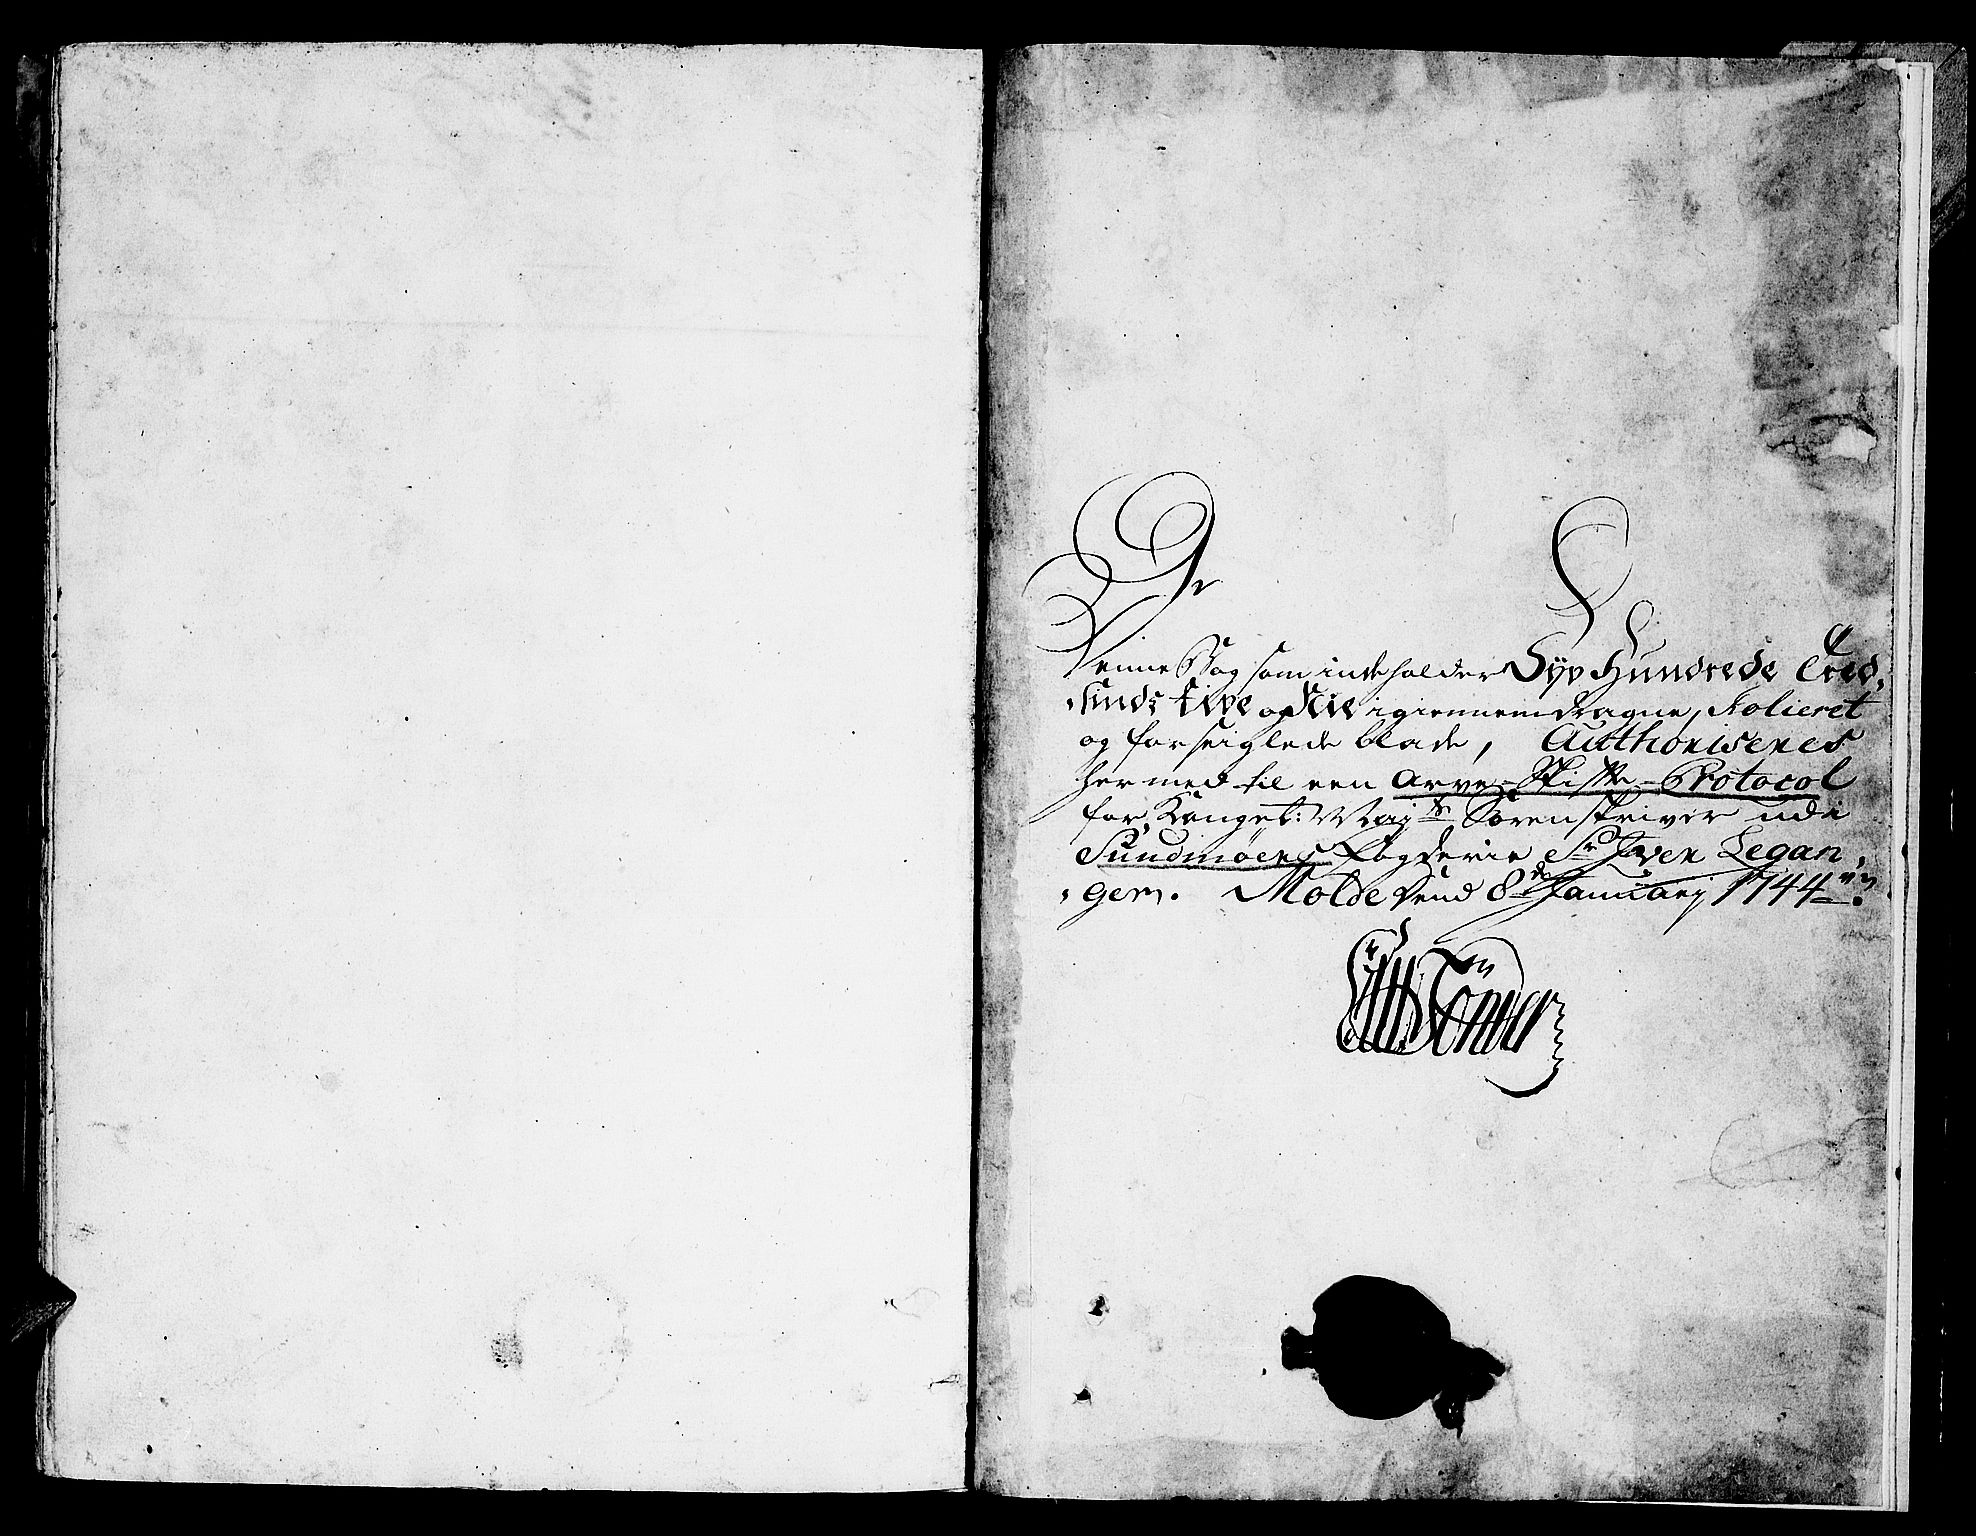 Denne Bog som indeholder Syv Hundrede Tred,
,sinds tive og igiennemdragne, Folieret
og forseiglede blade, Authoriseres
hermed til een Arve-Skifte-Protocol
for, Konget: May:ts Sorenskriver udi
Sundmöers Fogderie Sr Iver Legan,
,ger. Molde dend 8de Januarij 1744